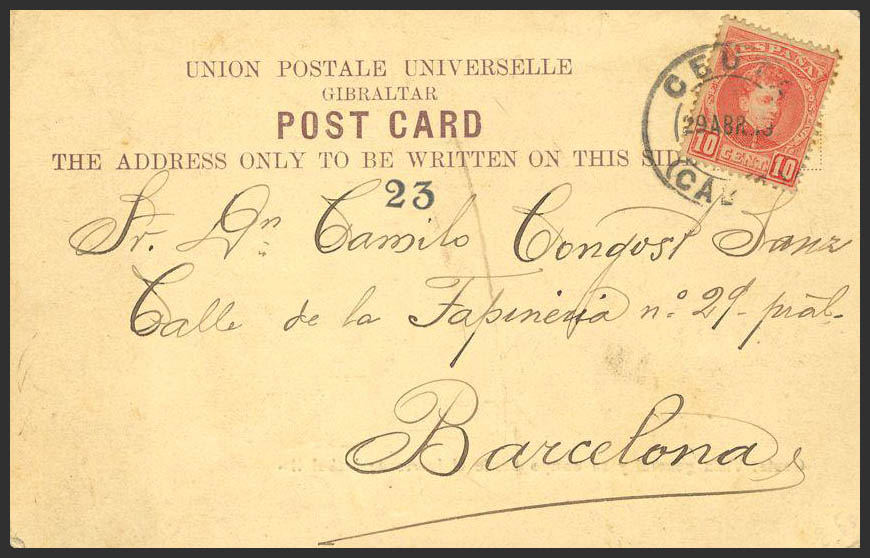 UNION POSTALE UNIVERSELLE
GIBRALTAR
POST CARD
THE ADDRESS ONLY TO BE WRITTEN ON THIS SID
ESPAÑA
10 CENT 10
CEU
29 ABR
(CAD
23
Sr. Dn Camilo Congost Sanz
Calle de la Tapineria nº 29- pràl-
Barcelona